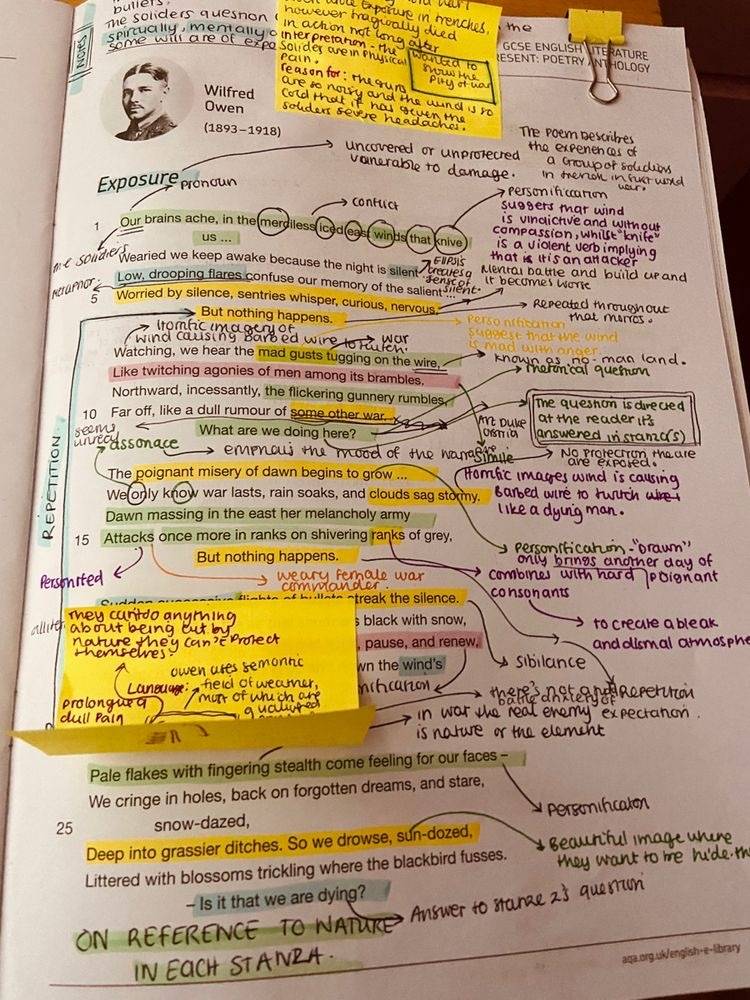 bullets.
The soliders question
spirtually, mentally
some will are of expo
NOTES
and exposure in trenches,
however tragically died
in action not long after
interpretation - the
Soldies are in physical
pain.
wanted to
show the
pity of war
reason for: the guns
are so noisy and the wind is so
cold that it has given the
soliders severe headaches.
the
GCSE ENGLISH LITERATURE
RESENT: POETRY ANTHOLOGY
Wilfred
Owen
(1893–1918)
uncovered or unprotected
vanerable to damage.
The poem describes
the experiences of
a group of soliders
in trench in first world
war.
Exposure
pronoun
conflict
personification
suggests that wind
is vindictive and without
compassion, whilst "knife"
is a violent verb implying
that is it is an attacker
1 Our brains ache, in the merciless iced east winds that knive
us ...
the soliders
Wearied we keep awake because the night is silent ...
Elipsis
creates a
sense of
silent.
Mental battle and build up and
it becomes worse
metaphor
Low, drooping flares confuse our memory of the salient ...
5 Worried by silence, sentries whisper, curious, nervous,
But nothing happens.
Repeated throughout
that mirrors.
Horrific imagery of
wind causing barbed wire to twitch.
war
personification
suggest that the wind
is mad with anger.
Watching, we hear the mad gusts tugging on the wire,
known as no-man land.
Like twitching agonies of men among its brambles.
rhetorical question
Northward, incessantly, the flickering gunnery rumbles,
10 Far off, like a dull rumour of some other war.
seems
unreal
What are we doing here?
The question is directed
at the reader it's
answered in stanza(s)
REPETITION
assonace
emphais the mood of the narrative.
Simile
No protection the are
are exposed.
The poignant misery of dawn begins to grow ...
Horrific images wind is causing
barbed wire to twitch
like a dying man.
We only know war lasts, rain soaks, and clouds sag stormy.
Dawn massing in the east her melancholy army
15 Attacks once more in ranks on shivering ranks of grey,
But nothing happens.
Personification - "Drawn"
only brings another day of
Personified
weary female war
commander.
combines with hard poignant
consonants
to create a bleak
and dismal atmosphe
Sudden successive flights of bullets streak the silence.
allite
black with snow,
, pause, and renew,
wn the wind's
nification
They cantdo anything
about being cut by
nature they can't protect
themselves.
owen uses semantic
field of weather,
most of which are
Language:
prolongued
dull pain
sibilance
there's not any
battle anxiety of
expectation.
Repetition
in war the real enemy
is nature or the element
Pale flakes with fingering stealth come feeling for our faces –
We cringe in holes, back on forgotten dreams, and stare,
25 snow-dazed,
personificaton
Deep into grassier ditches. So we drowse, sun-dozed,
Beautiful image where
they want to be hide.
Littered with blossoms trickling where the blackbird fusses.
– Is it that we are dying?
Answer to stanze 2's question
ON REFERENCE TO NATURE
IN EACH STANZA.
aqa.org.uk/english-e-library